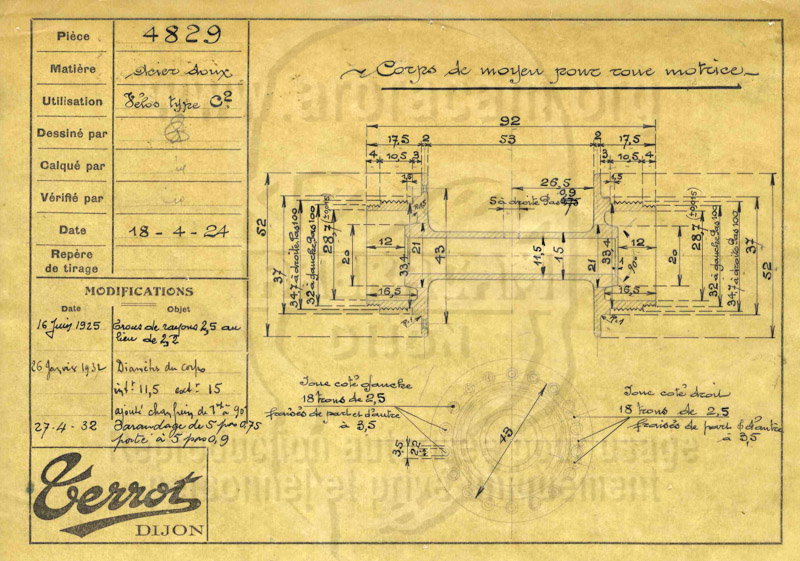 Pièce 4829
Matière Acier doux
Utilisation Vélos type C2
Dessiné par
Calqué par
Vérifié par
Date 18-4-24
Repère
de tirage
MODIFICATIONS
Date Objet
16 Juin 1925 Trous de rayons 2,5 au
lieu de 2,2
26 Janvier 1932 Diamètres du corps
intr 11,5 extr 15
ajouté chanfrein de 1 à 90°
27-4-32 Taraudage de 5 pas 0,75
porté à 5 pas 0,9
Terrot
DIJON
Corps de moyeu pour roue motrice
92
17,5 2 53 2 17,5
4 10,5 3 3 10,5 4
1,5 26,5 0,9 1,5
5 à droite pas 0,75
52
37
34,7 à droite pas 100
32 à gauche pas 100
28,7 (±0,015)
20
12
33,4
21
43
11,5
15
21
33,4
12
20
28,7 (±0,015)
32 à gauche pas 100
34,7 à droite pas 100
37
52
16,5 16,5
R.1 R.1
Joue coté gauche
18 trous de 2,5
fraisés de part et d'autre
à 3,5
3,5
2,2
43
Joue coté droit
18 trous de 2,5
fraisés de part & d'autre
à 3,5